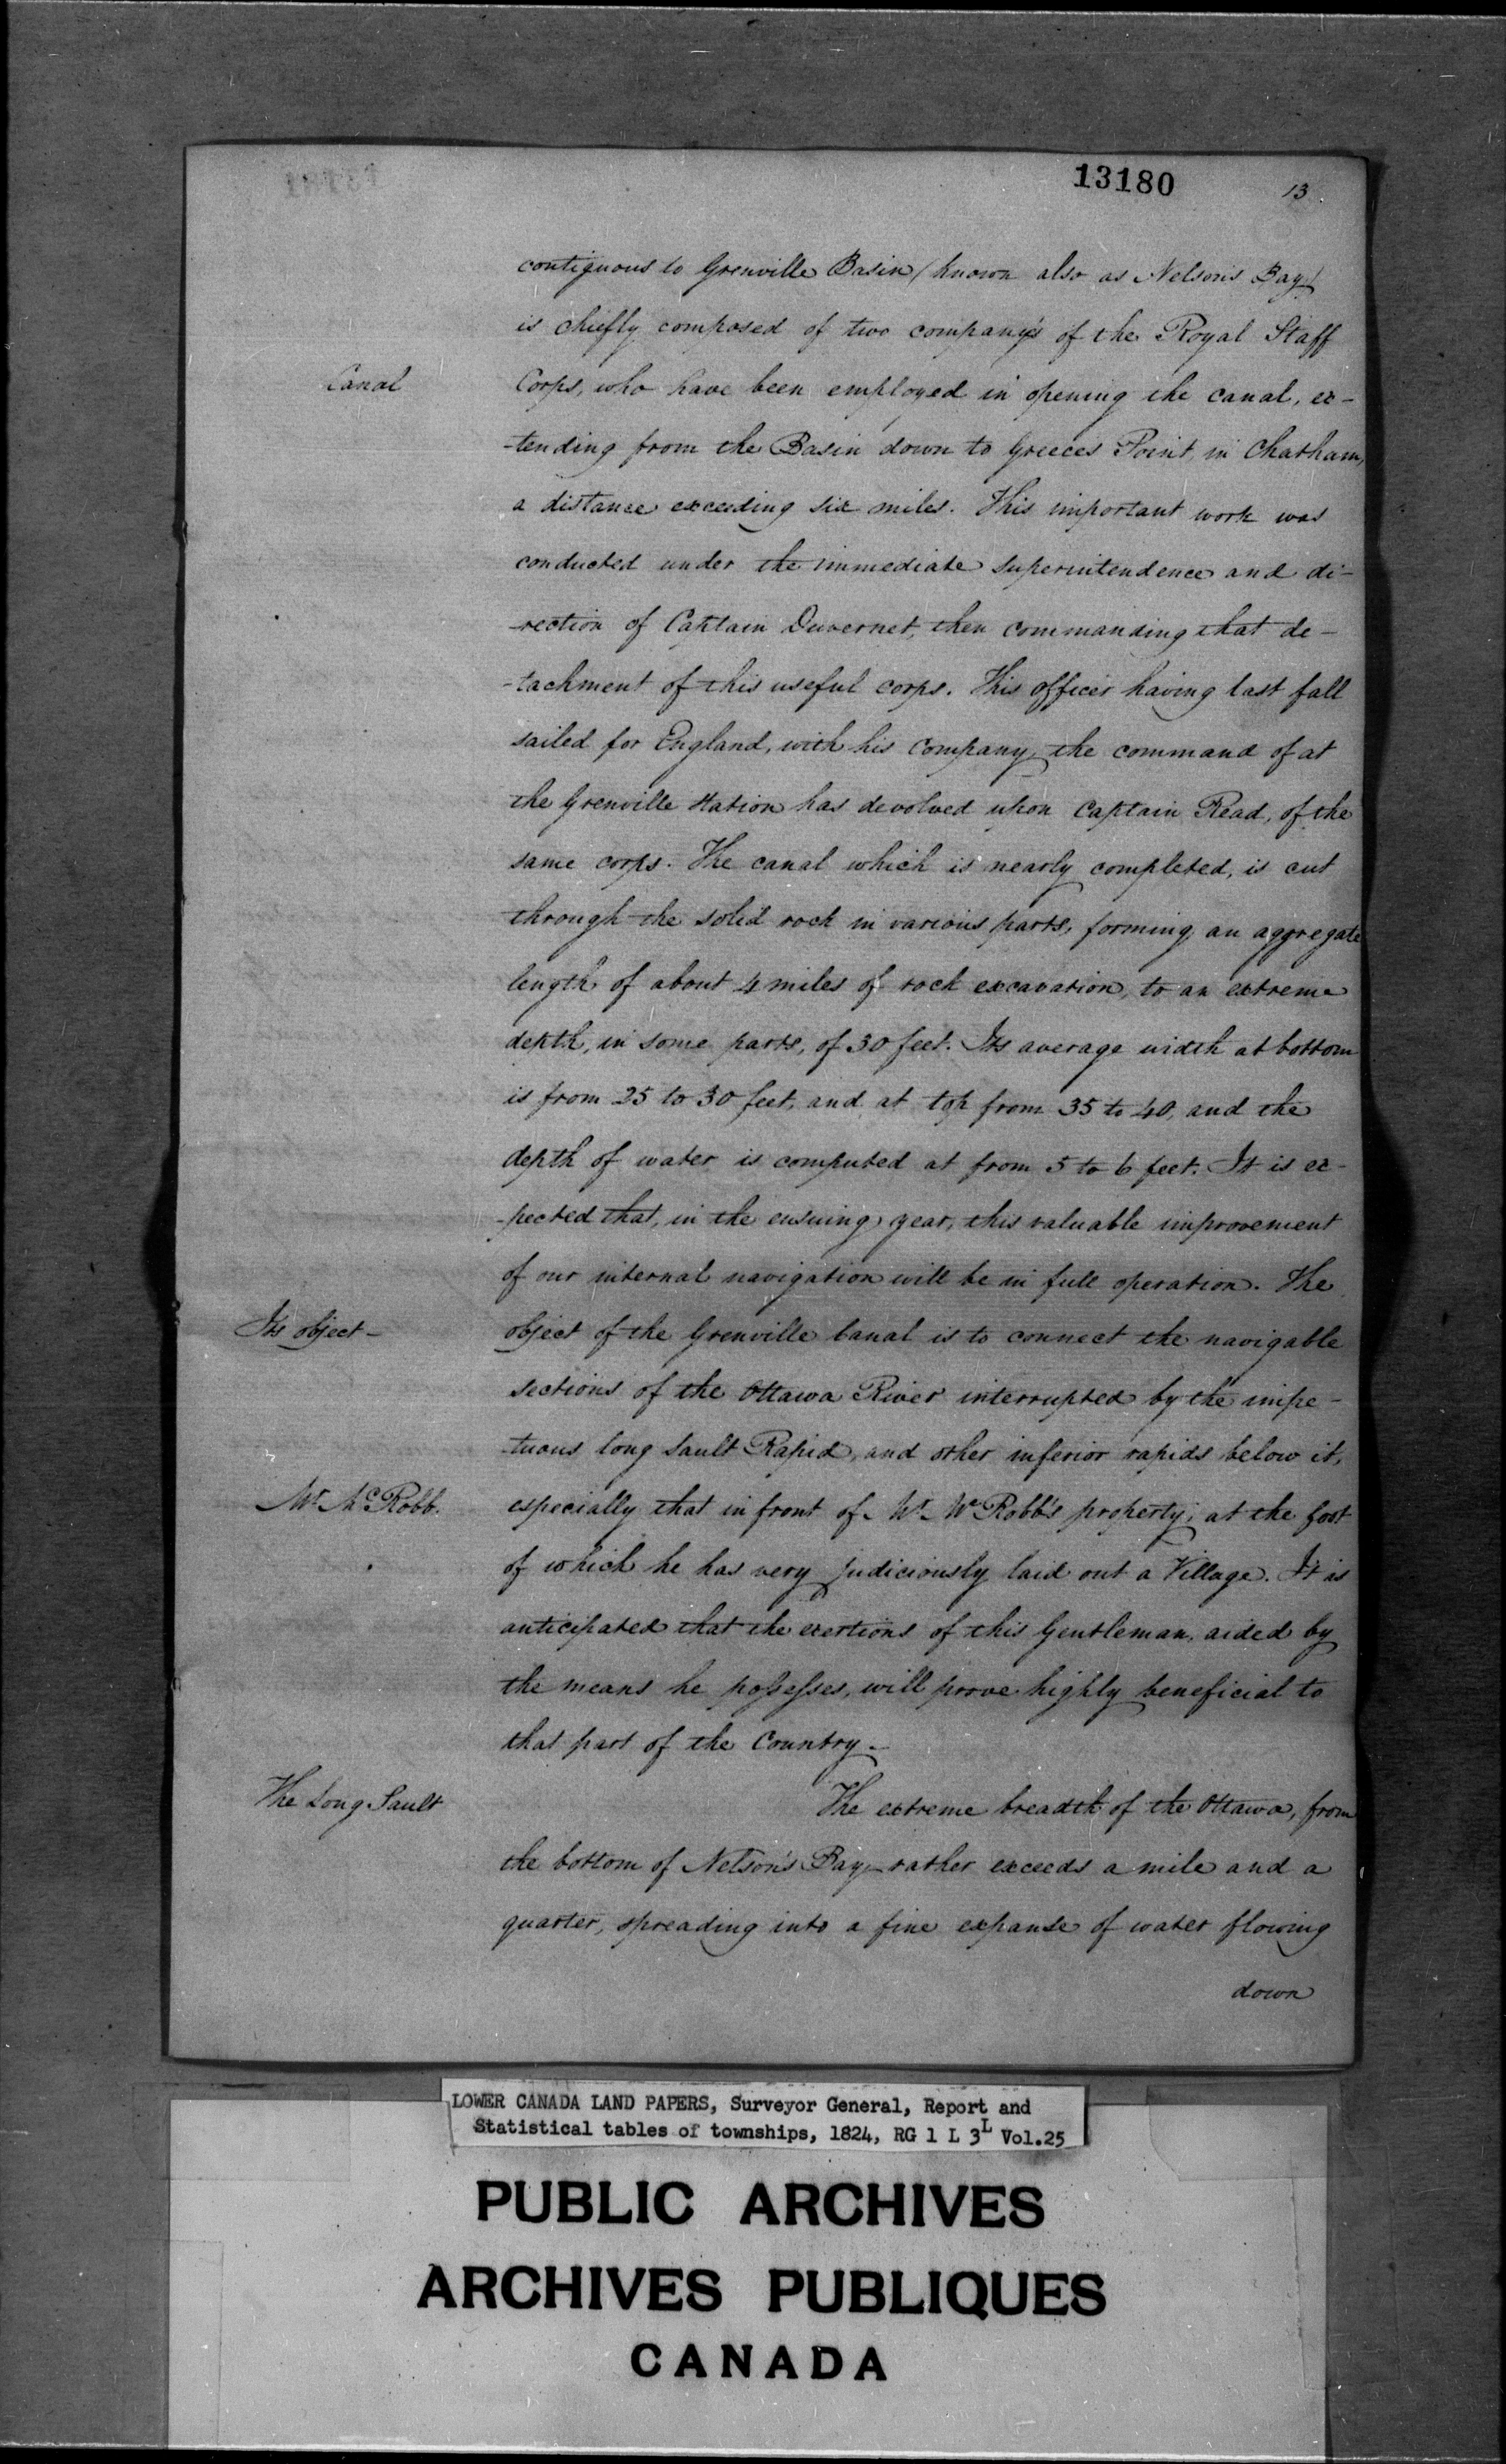 13180
13.
contiguous to Grenville Basin (known also as Nelson's Bay)
is chiefly composed of two company's of the Royal Staff
Canal
Corps, who have been employed in opening the canal, ex-
-tending from the Basin down to Greeces Point, in Chatham,
a distance exceeding six miles. This important work was
conducted under the immediate superintendence and di-
-rection of Captain Duvernet, then commanding that de-
-tachment of this useful corps. This officer having last fall
sailed for England, with his company, the command of at
the Grenville station has devolved upon Captain Read, of the
same corps. The canal which is nearly completed, is cut
through the solid rock in various parts, forming an aggregate
length of about 4 miles of rock excavation, to an extreme
depth, in some parts, of 30 feet. Its average width at bottom
is from 25 to 30 feet, and at top from 35 to 40, and the
depth of water is computed at from 5 to 6 feet. It is ex-
-pected that, in the ensuing year, this valuable improvement
of our internal navigation will be in full operation. The
Its object-
object of the Grenville Canal is to connect the navigable
sections of the Ottawa River interrupted by the impe-
-tuous long Sault Rapid, and other inferior rapids below it,
Mr McRobb.
especially that in front of Mr McRobb's property; at the foot
of which he has very judiciously laid out a Village. It is
anticipated that the exertions of this Gentleman, aided by
the means he possesses, will prove highly beneficial to
that part of the Country.-
The Long Sault
The extreme breadth of the Ottawa, from
the bottom of Nelson's Bay, rather exceeds a mile and a
quarter, spreading into a fine expanse of water flowing
down
LOWER CANADA LAND PAPERS, Surveyor General, Report and
Statistical tables of townships, 1824, RG 1 L 3L Vol.25
PUBLIC ARCHIVES
ARCHIVES PUBLIQUES
CANADA